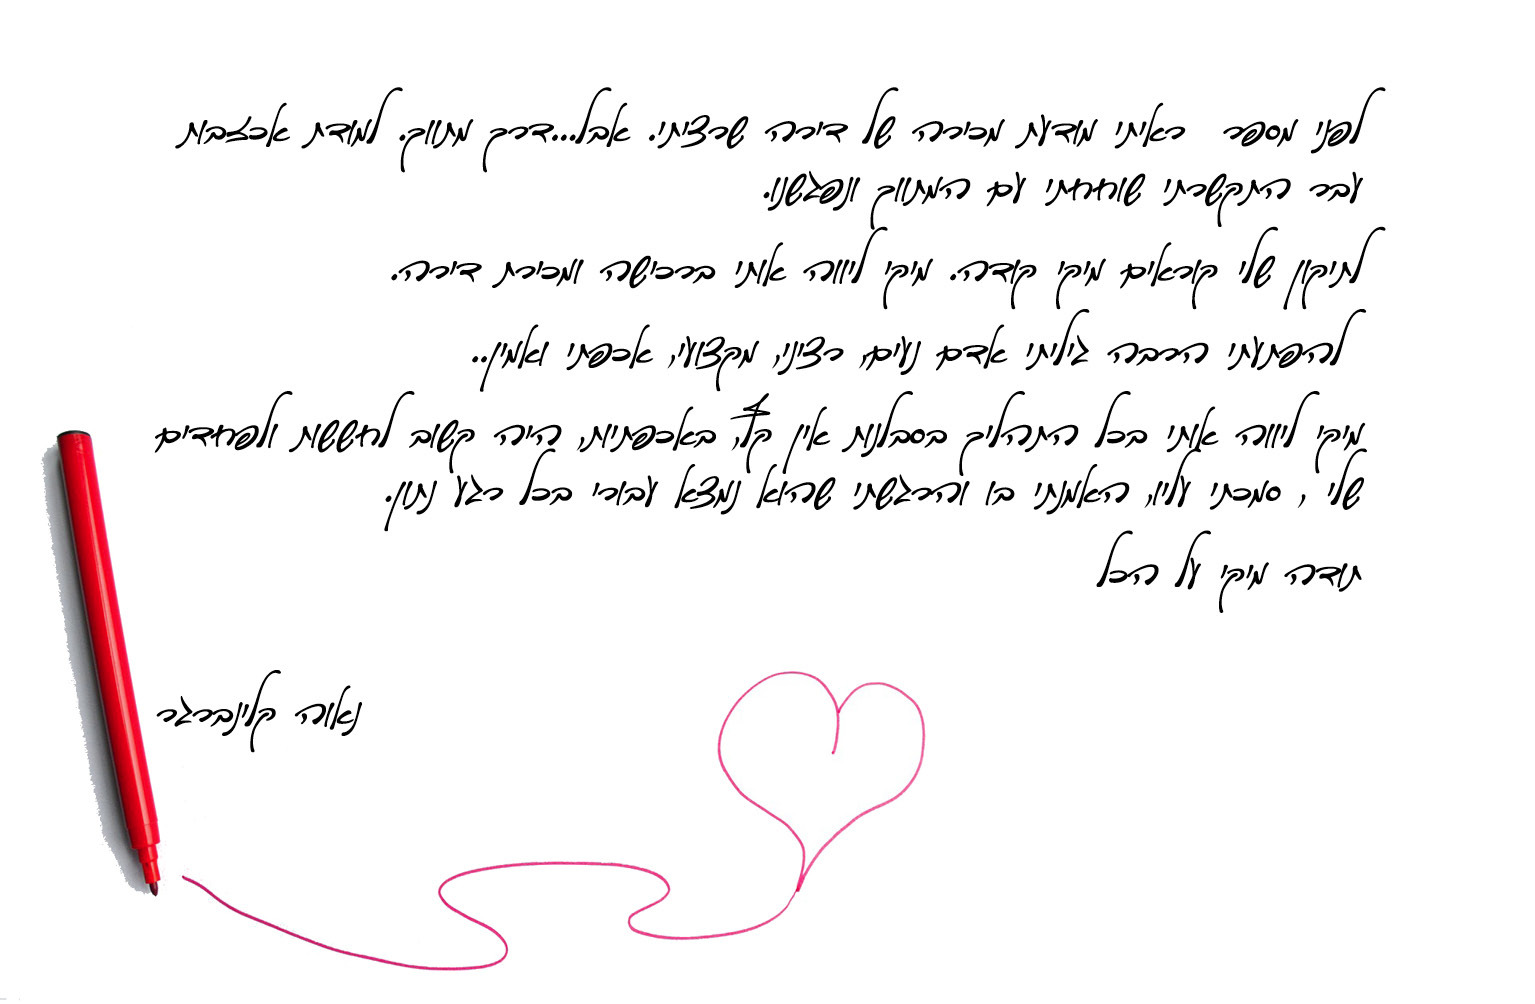 לפני מספר ראיתי מודעת מכירה של דירה שרציתי. אבל...דרך מתווך. למודת אכזבות
עבר התקשרתי שוחחתי עם המתווך ונפגשנו.
לתיקון שלי קוראים מיקי קודה. מיקי ליווה אותי ברכישה ומכירת דירה.
להפתעתי הרבה גיליתי אדם נעים, רציני, מקצועי, אכפתי ואמין..
מיקי ליווה אותי בכל התהליך בסבלנות אין קץ, באכפתיות, היה קשוב לחששות ולפחדים
שלי , סמכתי עליו, האמנתי בו והרגשתי שהוא נמצא עבורי בכל רגע נתון.
תודה מיקי על הכל
נאוה קלינברגר